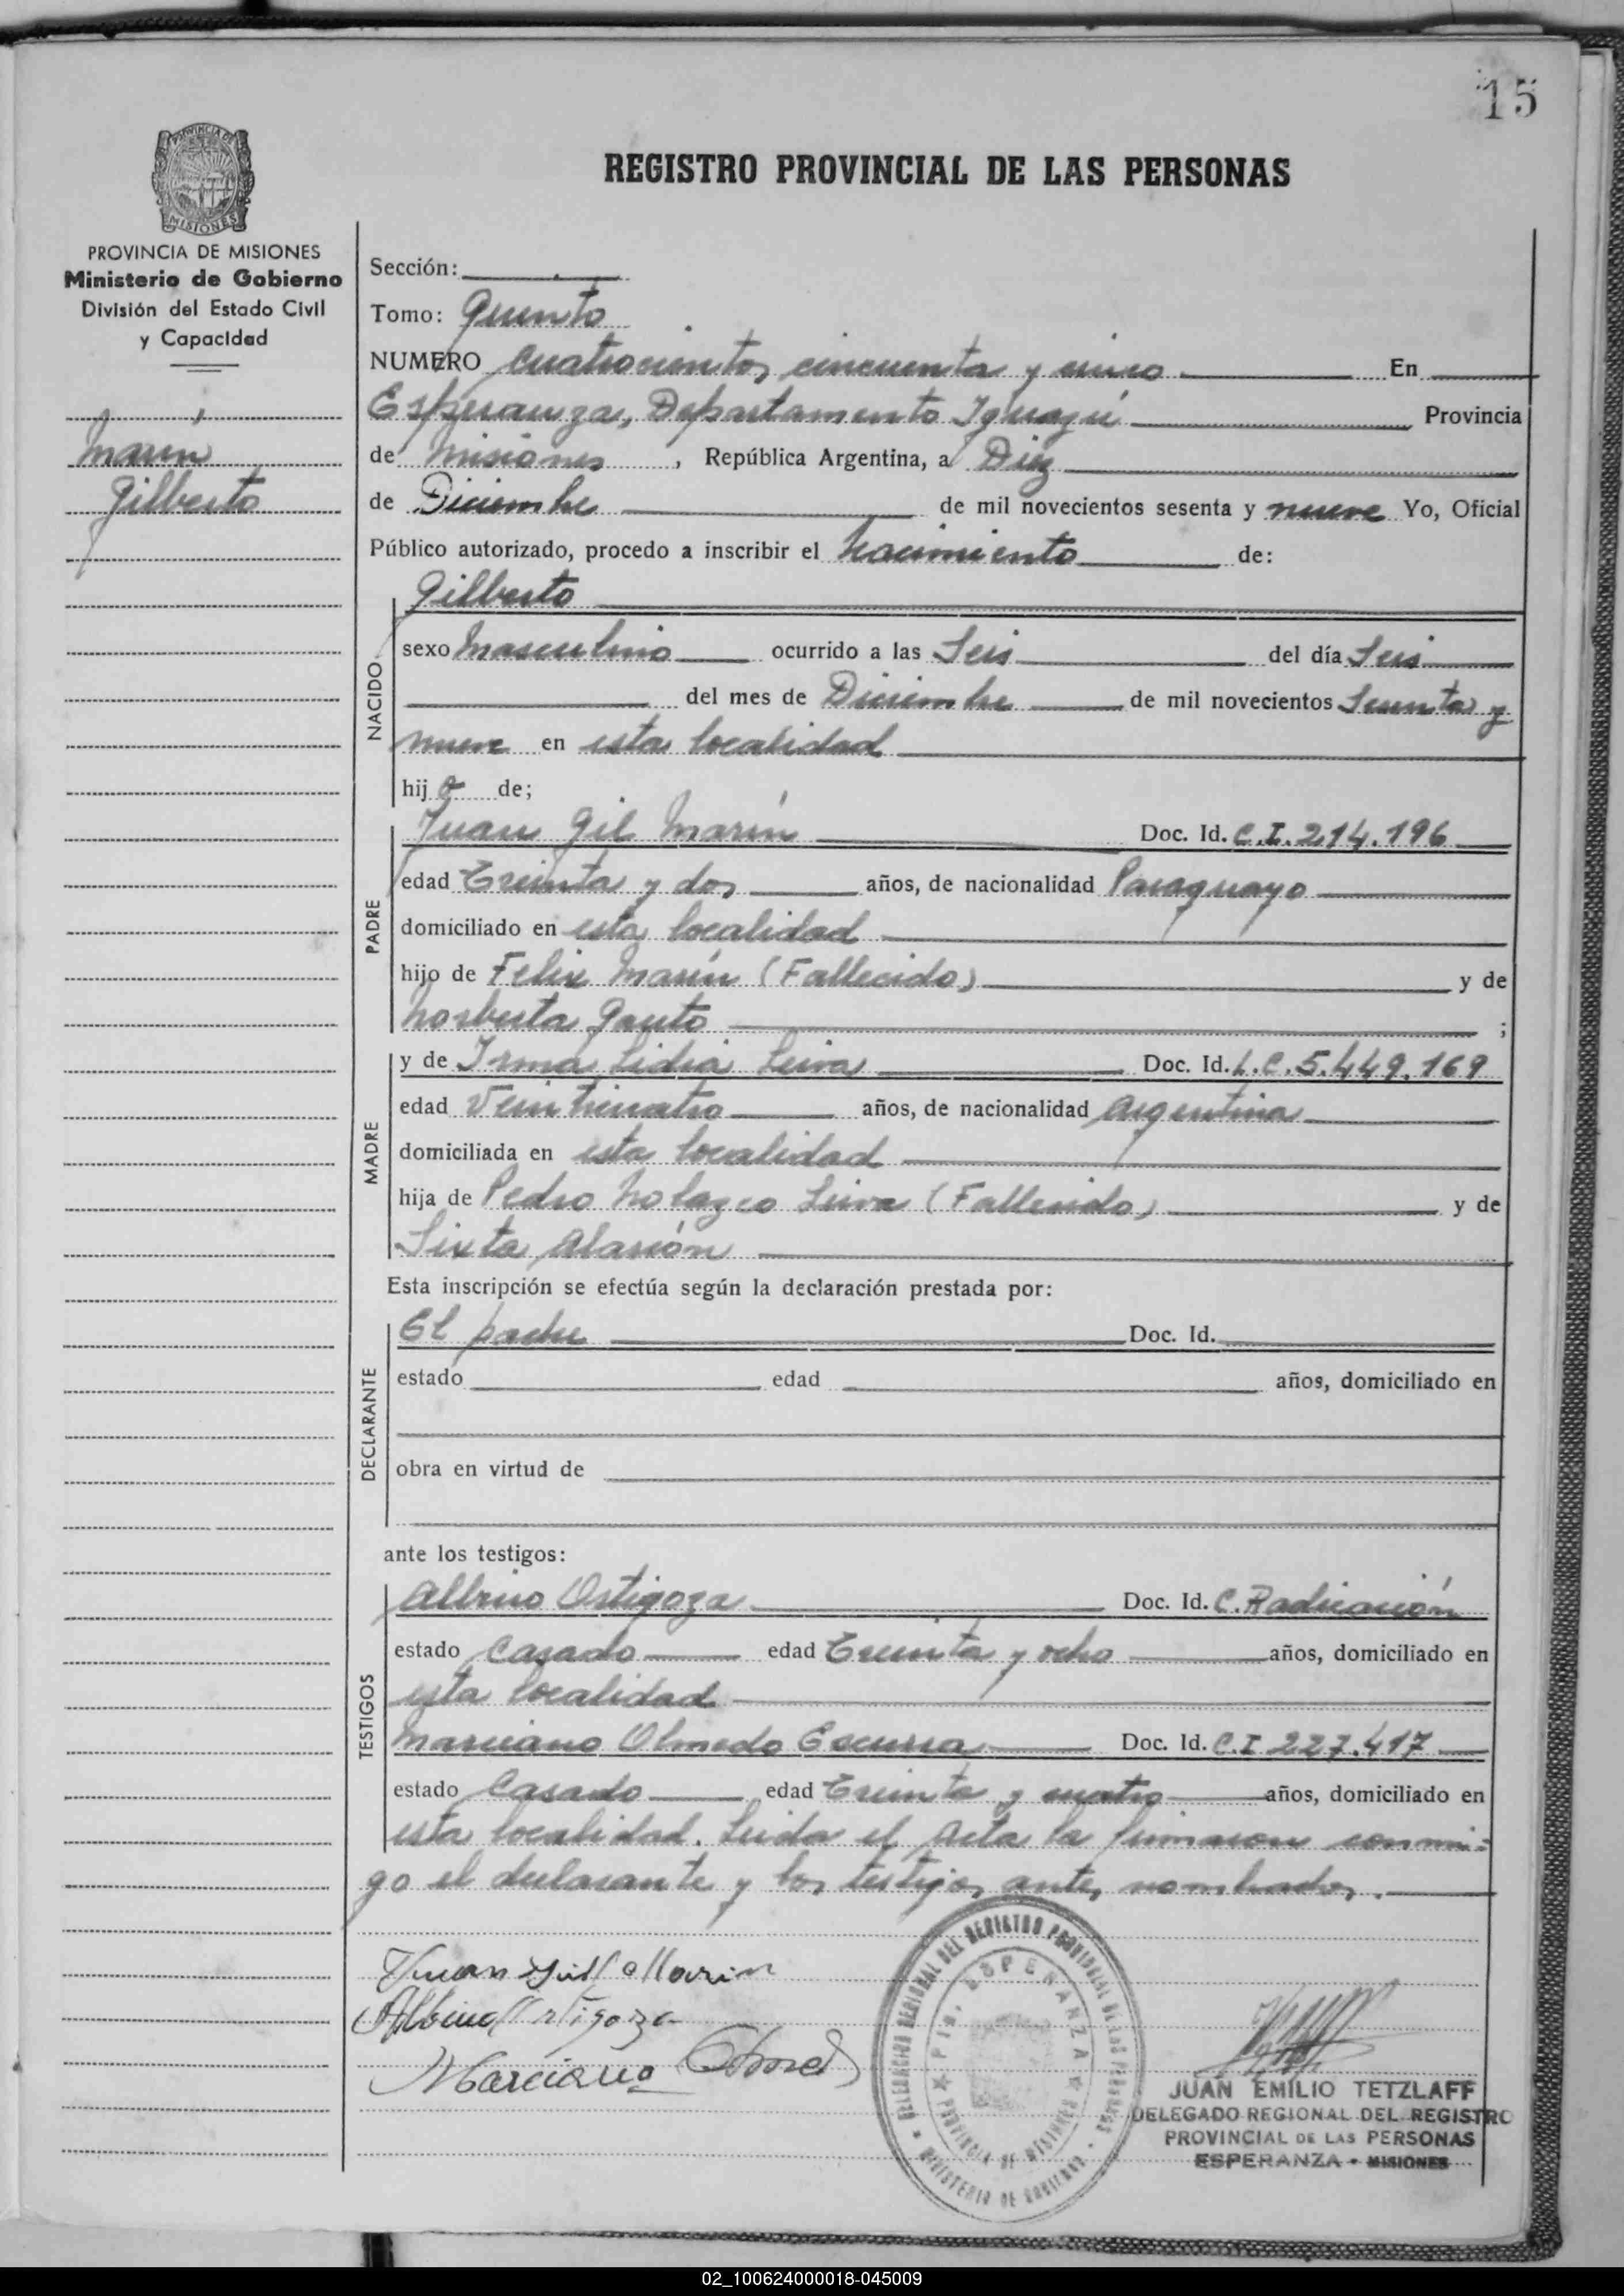 15
REGISTRO PROVINCIAL DE LAS PERSONAS
PROVINCIA DE MISIONES
Ministerio de Gobierno
División del Estado Civil
y Capacidad
Marín
Gilberto
Sección:
Tomo: Quinto
NUMERO Cuatrocientos cincuenta y cinco En
Esperanza, Departamento Iguazú Provincia
de Misiones, República Argentina, a Diez
de Diciembre de mil novecientos sesenta y nueve Yo, Oficial
Público autorizado, procedo a inscribir el Nacimiento de:
Gilberto
NACIDO
sexo Masculino ocurrido a las Seis del día Seis
del mes de Diciembre de mil novecientos Sesenta y
nueve en esta localidad
hijo de;
PADRE
Juan Gil Marín Doc. Id. C.I. 214.196
edad Treinta y dos años, de nacionalidad Paraguayo
domiciliado en esta localidad
hijo de Felix Marín (Fallecido) y de
Norberta Gauto ;
MADRE
y de Irma Lidia Leiva Doc. Id. L.C. 5.449.169
edad Veinticuatro años, de nacionalidad Argentina
domiciliada en esta localidad
hija de Pedro Nolazco Leiva (Fallecido) y de
Sixta Alarcón
Esta inscripción se efectúa según la declaración prestada por:
DECLARANTE
El padre Doc. Id.
estado edad años, domiciliado en
obra en virtud de
ante los testigos:
TESTIGOS
Albino Ortigoza Doc. Id. C. Radicación
estado Casado edad Treinta y ocho años, domiciliado en
esta localidad
Marciano Olmedo Escurra Doc. Id. C.I 227.417
estado Casado edad Treinta y cuatro años, domiciliado en
esta localidad. Leida el Acta la firmaron conmi=
go el declarante y los testigos antes nombrados.
Juan Gil Marin
Albino Ortigoza
Marciano Olmedo
DELEGACION REGIONAL DEL REGISTRO PROVINCIAL DE LAS PERSONAS
MINISTERIO DE GOBIERNO
Pto. ESPERANZA
PROVINCIA DE MISIONES
JUAN EMILIO TETZLAFF
DELEGADO REGIONAL DEL REGISTRO
PROVINCIAL DE LAS PERSONAS
ESPERANZA - MISIONES
02_100624000018-045009